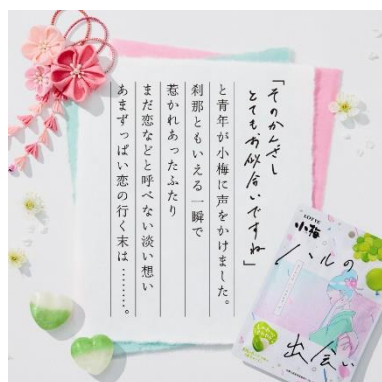 「そのかんざし
とてもお似合いですね」
と青年が小梅に声をかけました。
刹那ともいえる一瞬で
惹かれあったふたり
まだ恋などと呼べない淡い想い
あまずっぱい恋の行く末は………。
LOTTE
小梅
ハルの
出会い